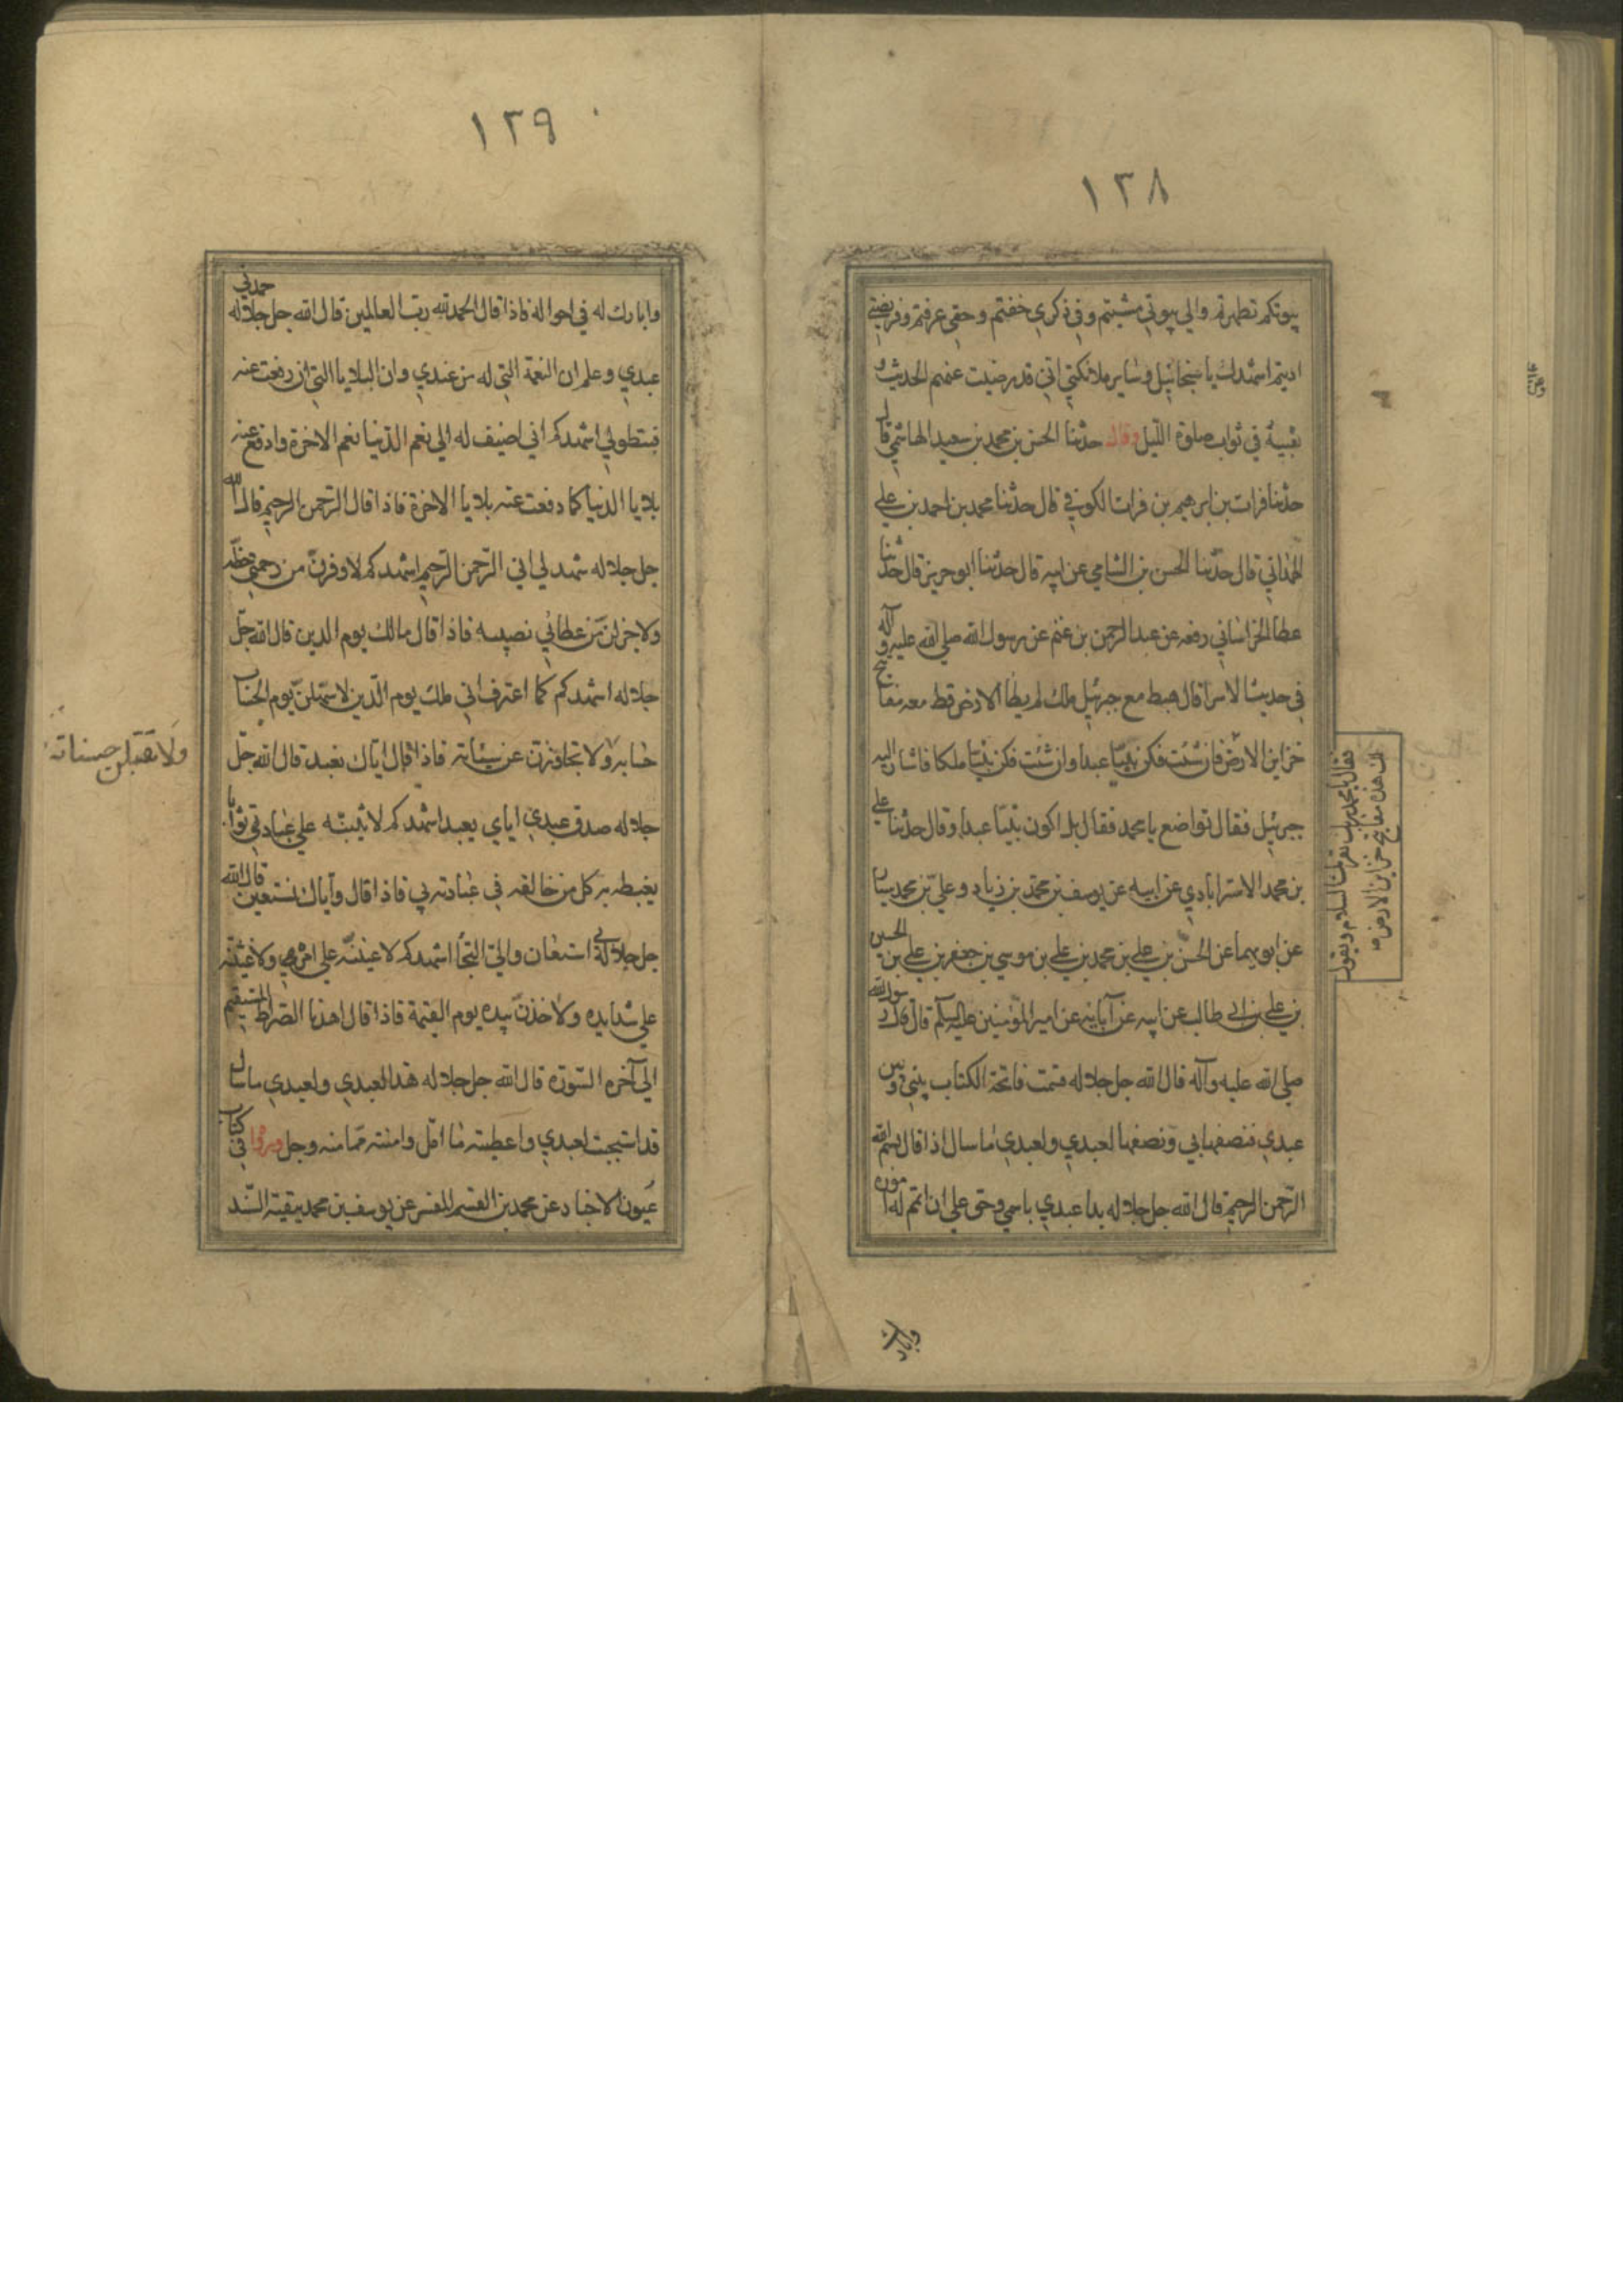 ١٣٨
بيوتكم تطهرتم والي بيوتي مشيتم وفي ذكري خضتم وحقي عرفتم وفريضتي
اديتم اشهدك يا سخائيل وساير ملائكتي اني قد رضيت عنهم الحديث و
بقيته في ثواب صلوة الليل وقال حدثنا الحسن بن محمد بن سعيد الهاشمي قال
حدثنا فرات بن ابرهيم بن فرات الكوفي قال حدثنا محمد بن احمد بن علي
الهمداني قال حدثنا الحسن بن الشامي عن ابيه قال حدثنا ابو جرير قال حدثنا
عطا الخراساني رفعه عن عبد الرحمن بن غنم عن رسول الله صلي الله عليه وآله
في حديث الاسرا قال هبط مع جبرئيل ملك لم يطا الارض قط معه مفاتيح
خزاين الارض فان شئت فكن نبيا عبدا وان شئت فكن نبيا ملكا فاشار اليه
فقال يا محمد ان ربك يقرئك السلام ويقول
لك هذه مفاتيح خزاين الارض
جبرئيل فقال تواضع يا محمد فقال بل اكون نبيا عبدا وقال حدثنا علي
بن محمد الاسترابادي عن ابيه عن يوسف بن محمد بن زياد وعلي بن محمد سيار
عن ابويهما عن الحسن بن علي بن محمد بن علي بن موسي بن جعفر بن علي بن الحسين
بن علي بن ابي طالب عن ابيه عن آبائه عن امير المؤمنين عليه السلم قال قال رسول الله
صلي الله عليه وآله قال الله جل جلاله قسمت فاتحة الكتاب بيني وبين
عبدي فنصفها لي ونصفها لعبدي ولعبدي ما سال اذا قال بسم الله
الرحمن الرحيم قال الله جل جلاله بدا عبدي باسمي وحق علي ان اتمم له اموره
وابارك
١٣٩
وابارك له في احواله فاذا قال الحمد لله رب العالمين قال الله جل جلاله حمدني
عبدي وعلم ان النعمة التي له من عندي وان البلايا التي ان دفعت عنه
فبتطولي اشهدكم اني اضيف له الي نعم الدنيا نعم الاخرة وادفع عنه
بلايا الدنيا كما دفعت عنه بلايا الاخرة فاذا قال الرحمن الرحيم قال الله
جل جلاله شهد لي اني الرحمن الرحيم اشهدكم لاوفرن من رحمتي حظه
ولاجزلن من عطائي نصيبه فاذا قال مالك يوم الدين قال الله جل
جلاله اشهدكم كما اعترف اني ملك يوم الدين لاسهلن يوم الحساب
حسابه ولا تجاوزن عن سيئاته فاذا قال اياك نعبد قال الله جل
ولاتقبلن حسناته
جلاله صدق عبدي اياي يعبد اشهدكم لاثيبنه علي عبادتي ثوابا
يغبطه به كل من خالفه في عبادته لي فاذا قال واياك نستعين قال الله
جل جلاله بي استعان والي التجأ اشهدكم لاعيننه علي امره ولاغيثنه
علي شدايده ولاخذن بيده يوم القيمة فاذا قال اهدنا الصراط المستقيم
الي آخره السورة قال الله جل جلاله هذا لعبدي ولعبدي ما سال
قد استجبت لعبدي واعطيته ما امل وامنته مما منه وجل ورواه في كتاب
عيون الاخبار عن محمد بن القسم المفسر عن يوسف بن محمد ببقية السند